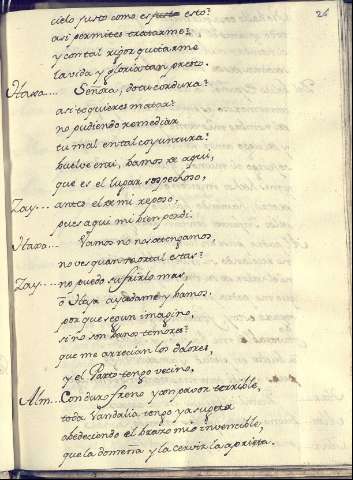 26
cielo justo como es justo esto?
asi permites tratarme?
y con tal rigor quitarme
la vida y gloria tan presto.
Haxa... Señora, do tu cordura?
asi te quieres matar?
no pudiendo remediar
tu mal en tal coyuntura?
buelve en ti, bamos de aqui,
que es el lugar sospechoso,
Zay... antes el de mi reposo,
pues aqui mi bien perdi.
Haxa... Vamos no nos atengamos,
no ves quan mortal estas?
Zay... no puedo sufrirlo mas,
ō Haxa ayudame y bamos.
porque segun imagino,
si no son banos temores?
que me arrecian los dolores,
y el Parto tengo vecino,
Alm... Con duro freno y con pavor terrible,
toda Vandalia tengo ya sugeta
obedeciendo el brazo mio invencible,
que la domeña y la cerviz la aprieta.